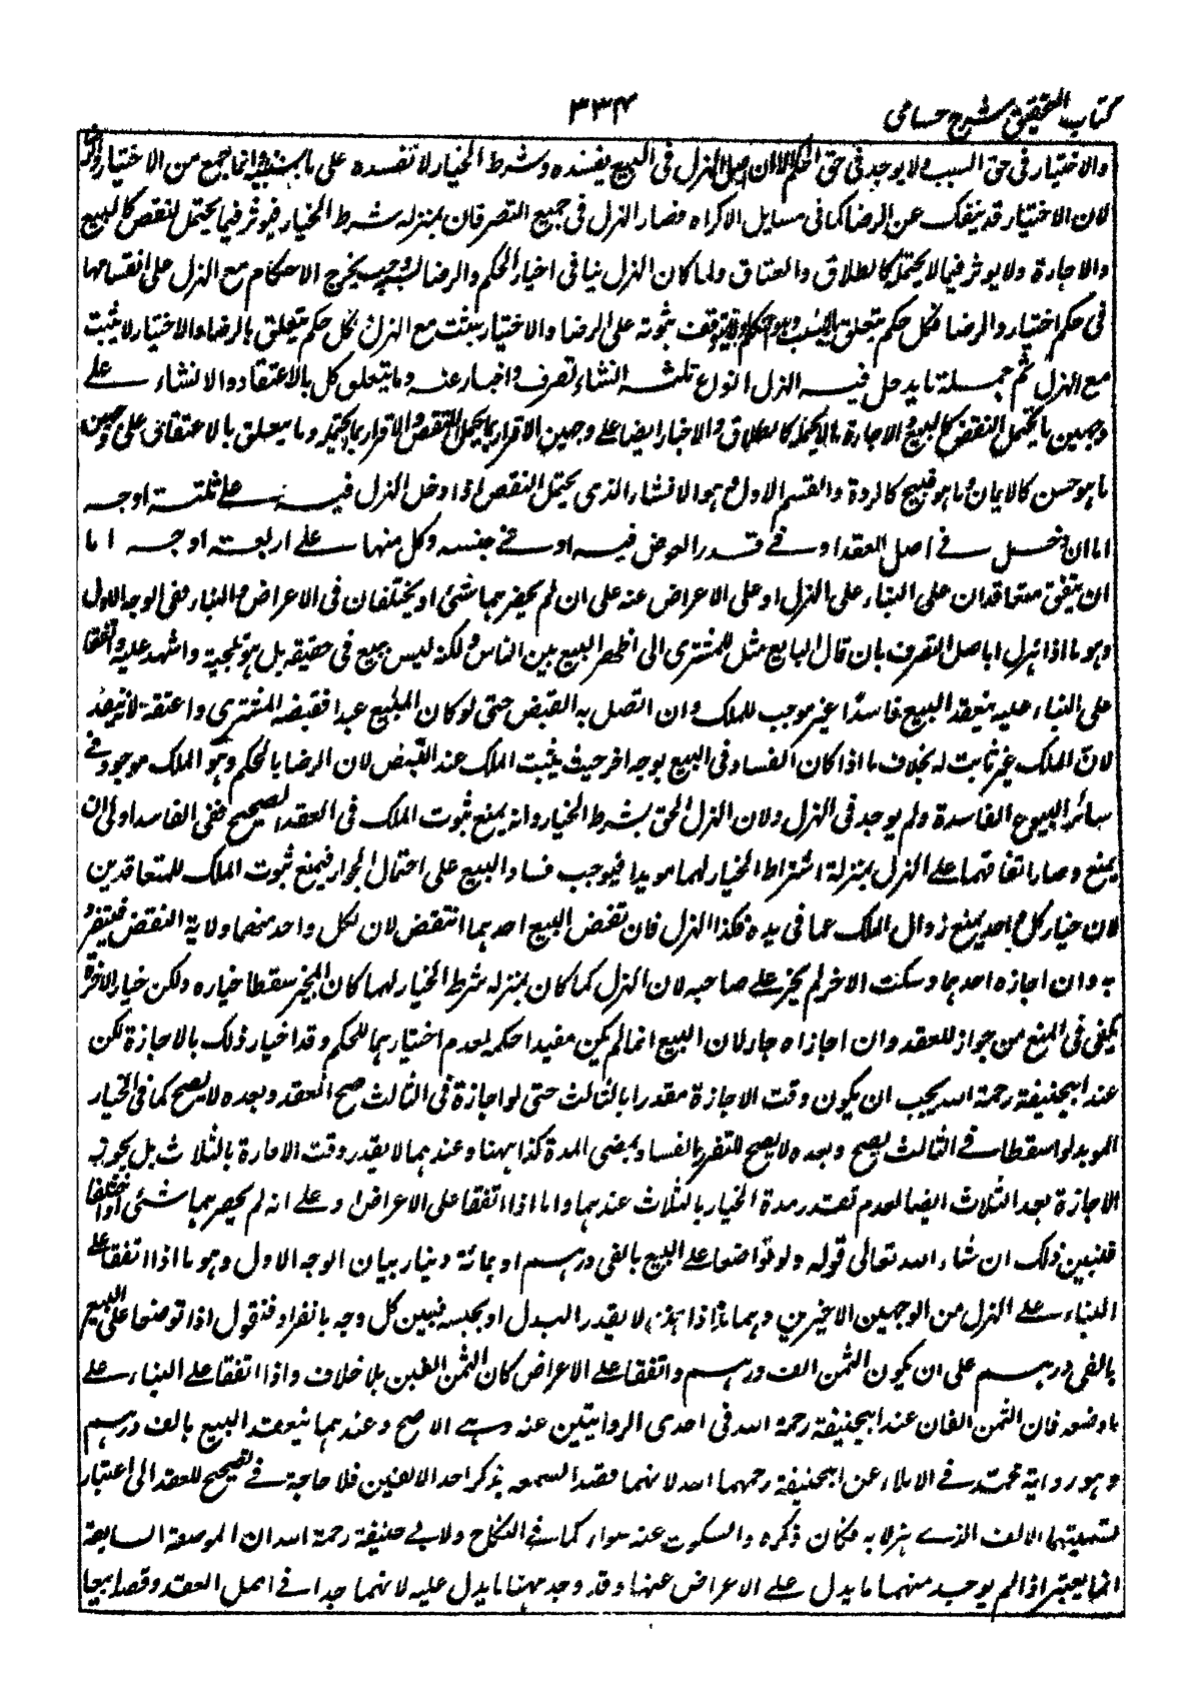 كتاب التحقيق شرح حسامى
٣٣٤
والاختيار فى حق السبب ولا يوجد فى حق الحكم الا ان الهزل فى البيع يفسده وشرط الخيار لا تفسده على ما انما جمع من الاختيار والرضا
لان الاختيار قد ينفك عن الرضا كما فى مسايل الاكراه فصار الهزل فى جميع التصرفات بمنزله شرط الخيار فيوثر فيما يحتمل النقض كالبيع
والاجارة ولا يوثر فيما لا يحتمل كالطلاق والعتاق ولما كان الهزل ينافى اختيار الحكم والرضا لسببه يخرج الاحكام مع الهزل على انقسامها
فى حكم اختيار والرضا فكل حكم يتعلق بالسبب ولا يتوقف ثبوته على الرضا والاختيار يثبت مع الهزل وكل حكم يتعلق بالرضا والاختيار لا يثبت
مع الهزل ثم جملة ما يدخل فيه الهزل انواع ثلثه انشاء تصرف واخبار عنه وما يتعلق كل بالاعتقاد والانشاء على
وجهين ما يحتمل النقض كالبيع والاجارة وما لا يحتمله كالطلاق والاخبار ايضا على وجهين الاقرار بما يحتمل النقض والاقرار بما لا يحتمله وما يتعلق بالاعتقاد على وجهين
ما هو حسن كالايمان وما هو قبيح كالردة والقسم الاول وهو الانشاء الذى يحتمل النقض اذا دخل الهزل فيه على ثلثة اوجه
اما ان دخل فى اصل العقد او فى قدر العوض فيه او فى جنسه وكل منها على اربعة اوجه اما
ان يتفق متعاقدان على البناء على الهزل او على الاعراض عنه على ان لم يحضرهما شئ او يختلفان فى الاعراض والبناء ففى الوجه الاول
وهو ما اذا هزلا باصل التصرف بان قال البايع مثل للمشترى الى اظهر البيع بين الناس ولكنه ليس ببيع فى حقيقه بل هو تلجية واشهد عليه واتفقا
على البناء عليه ينعقد البيع فاسدا غير موجب للملك وان اتصل به القبض حتى لو كان المبيع عبدا فقبضه المشترى واعتقه لا ينفذ
لان الملك غير ثابت له بخلاف ما اذا كان الفساد فى البيع بوجه اخر حيث يثبت الملك عند القبض لان الرضا بالحكم وهو الملك موجود فى
سائر البيوع الفاسدة ولم يوجد فى الهزل ولان الهزل الحق بشرط الخيار وانه يمنع ثبوت الملك فى العقد الصحيح ففى الفاسد اولى ان
يمنع وصار اتفاقهما على الهزل بمنزلة اشتراط الخيار لهما مويدا فيوجب فساد البيع على احتمال الجواز فيمنع ثبوت الملك للمتعاقدين
لان خيار كل واحد يمنع زوال الملك عما فى يده فكذا الهزل فان نقض البيع احدهما انتقض لان لكل واحد منهما ولاية النقض فيتفرد
به وان اجازه احدهما وسكت الاخر لم يجز على صاحبه لان الهزل كما كان بمنزله شرط الخيار لهما كان المجيز مسقطا خياره ولكن خيار الاخر
يكفى فى المنع من جواز العقد وان اجازاه جاز لان البيع انما لم يكن مفيدا حكمه لعدم اختيارهما للحكم وقد اختيار ذلك بالاجازة لكن
عند ابيحنيفة رحمة الله يجب ان يكون وقت الاجازة مقدرا بالثالث حتى لو اجازة فى الثالث صح العقد وبعده لا يصح كما فى الخيار
المويد لو اسقطا فى الثالث يصح وبعده لا يصح للتقرر بالفساد بمضى المدة كذا ههنا وعندهما لا يقدر وقت الامارة بالثلاث بل يجوز
الاجازة بعد الثلاث ايضا لعدم تقدر مدة الخيار بالثلاث عندهما واما اذا اتفقا على الاعراض وعلى انه لم يحضرهما شئ او اختلفا
فنبين ذلك ان شاء الله تعالى قوله ولو تواضعا على البيع بالفى درهم او بمائة دينار بيان الوجه الاول وهو ما اذا اتفقا على
البناء على الهزل من الوجهين الاخيرين وهما ما اذا هزلا بقدر البدل او بجنسه فنبين كل وجه بانفراد فنقول اذا تواضعا على البيع
بالفى درهم على ان يكون الثمن الف درهم واتفقا على الاعراض كان الثمن الفين بلا خلاف واذا اتفقا على البناء على
ما وضعه فان الثمن الفان عند ابيحنيفة رحمة الله فى احدى الروايتين عنه وهى الاصح وعندهما ينعقد البيع بالف درهم
وهو رواية محمد فى الاملاء عن ابيحنيفة رحمهما الله لانهما قصدا السمعه بذكر احد الالفين فلا حاجة فى تصحيح العقد الى اعتبار
تسميتهما الالف الذى هزلا به فكان ذكره والسكوت عنه سواء كما فى النكاح ولابى حنيفة رحمة الله ان الموضعة السابقة
انما يعتبر اذا لم يوجد منهما ما يدل على الاعراض عنها وقد وجد ههنا ما يدل عليه لانهما جدا فى اصل العقد وقصدا بيعا